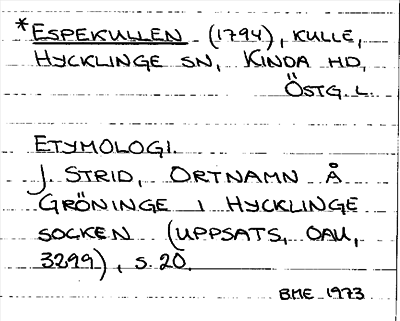 *ESPEKULLEN (1794), KULLE,
HYCKLINGE SN, KINDA HD,
ÖSTG. L.
ETYMOLOGI.
J. STRID, ORTNAMN Å
GRÖNINGE I HYCKLINGE
SOCKEN (UPPSATS, OAU,
3299), S. 20.
BME 1973